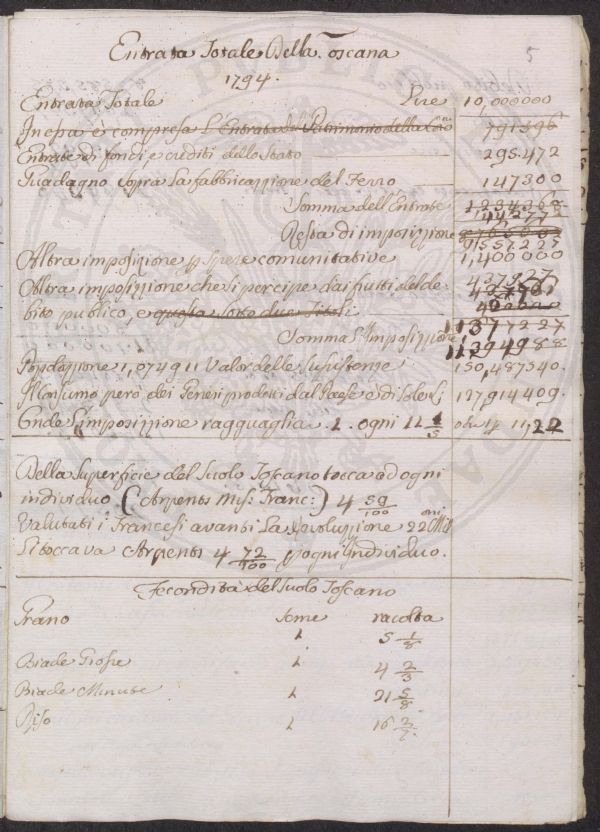 5
Entrata Totale Della Toscana
1794.
Entrata Totale Lire 10,000000
In essa è compresa L'Entrata del Patrimonio della 791596
Entrate di fondi e crediti dello Stato 295.472
Guadagno sopra La fabbricazzione del Ferro 147300
Somma dell'Entrate 1,234368
44277
Resta di imposizzione
9,557.227
Altra imposizione p spese comunitative 1,400000
Altra imposizzione che si percipe dai frutti del de- 437927
bito publico, e questa sotto due titoli
Somma L'Imposizzione 113 77227
1129498 8
Popolazzione 1,074911 Valor delle sussistenze 150,487540.
Il Consumo però dei Generi prodotti dal Paese è di sole L: 127,914409.
Onde L'imposizzione ragguaglia 1. ogni 11 4/5 o 11,22
Della Superficie del Suolo Toscano tocca ad ogni
individuo (Arpents Mis: Franc:) 4 59/100
Valutati i Francesi avanti La revoluzzione 22 Mil oni
Li toccava Arpents 4 72/100 p ogni Individuo.
Fecondità del Suolo Toscano
Grano some raccolta
1 5 1/8
Biade Grosse 1 4 2/3
Biade Minute 1 21 5/8
Riso 1 16